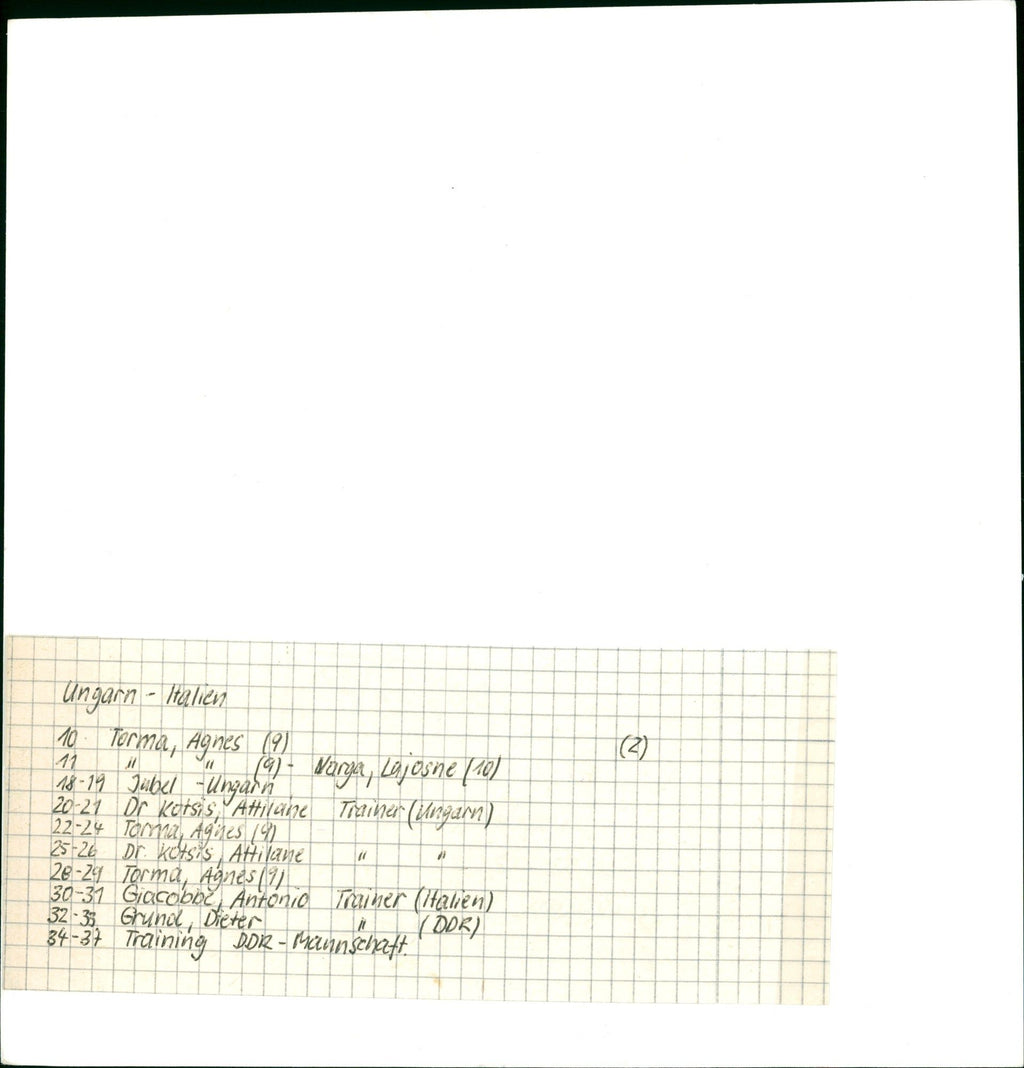 Ungarn - Italien
10 Torma, Agnes (9) (2)
11 " " (9) - Varga, Lajosne (10)
18-19 Jubel - Ungarn
20-21 Dr Kotsis, Attilane Trainer (Ungarn)
22-24 Torma, Agnes (9)
25-26 Dr. Kotsis, Attilane " "
28-29 Torma, Agnes (9)
30-31 Giacobbe, Antonio Trainer (Italien)
32-33 Grund, Dieter " (DDR)
34-37 Training DDR - Mannschaft.